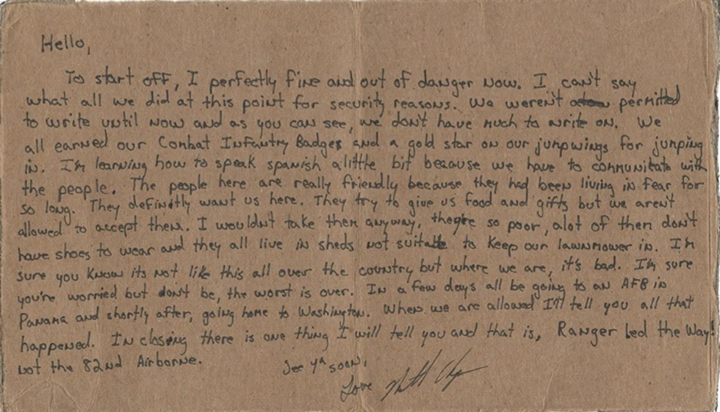 Hello,
To start off, I perfectly fine and out of danger now. I can't say
what all we did at this point for security reasons. We weren't permitted
to write until now and as you can see, we don't have much to write on. We
all earned our Combat Infantry Badges and a gold star on our jumpwings for jumping
in. I'm learning how to speak spanish a little bit because we have to communitate with
the people. The people here are really friendly because they had been living in fear for
so long. They definitly want us here. They try to give us food and gifts but we aren't
allowed to accept them. I wouldn't take them anyway, they're so poor, alot of them don't
have shoes to wear and they all live in sheds not suitable to keep our lawnmower in. I'm
sure you know its not like this all over the country but where we are, it's bad. I'm sure
you're worried but don't be, the worst is over. In a few days all be going to an AFB in
Panama and shortly after, going home to Washington. When we are allowed I'll tell you all that
happened. In closing there is one thing I will tell you and that is, Ranger Led the Way!
not the 82nd Airborne.
See Ya soon,
Love